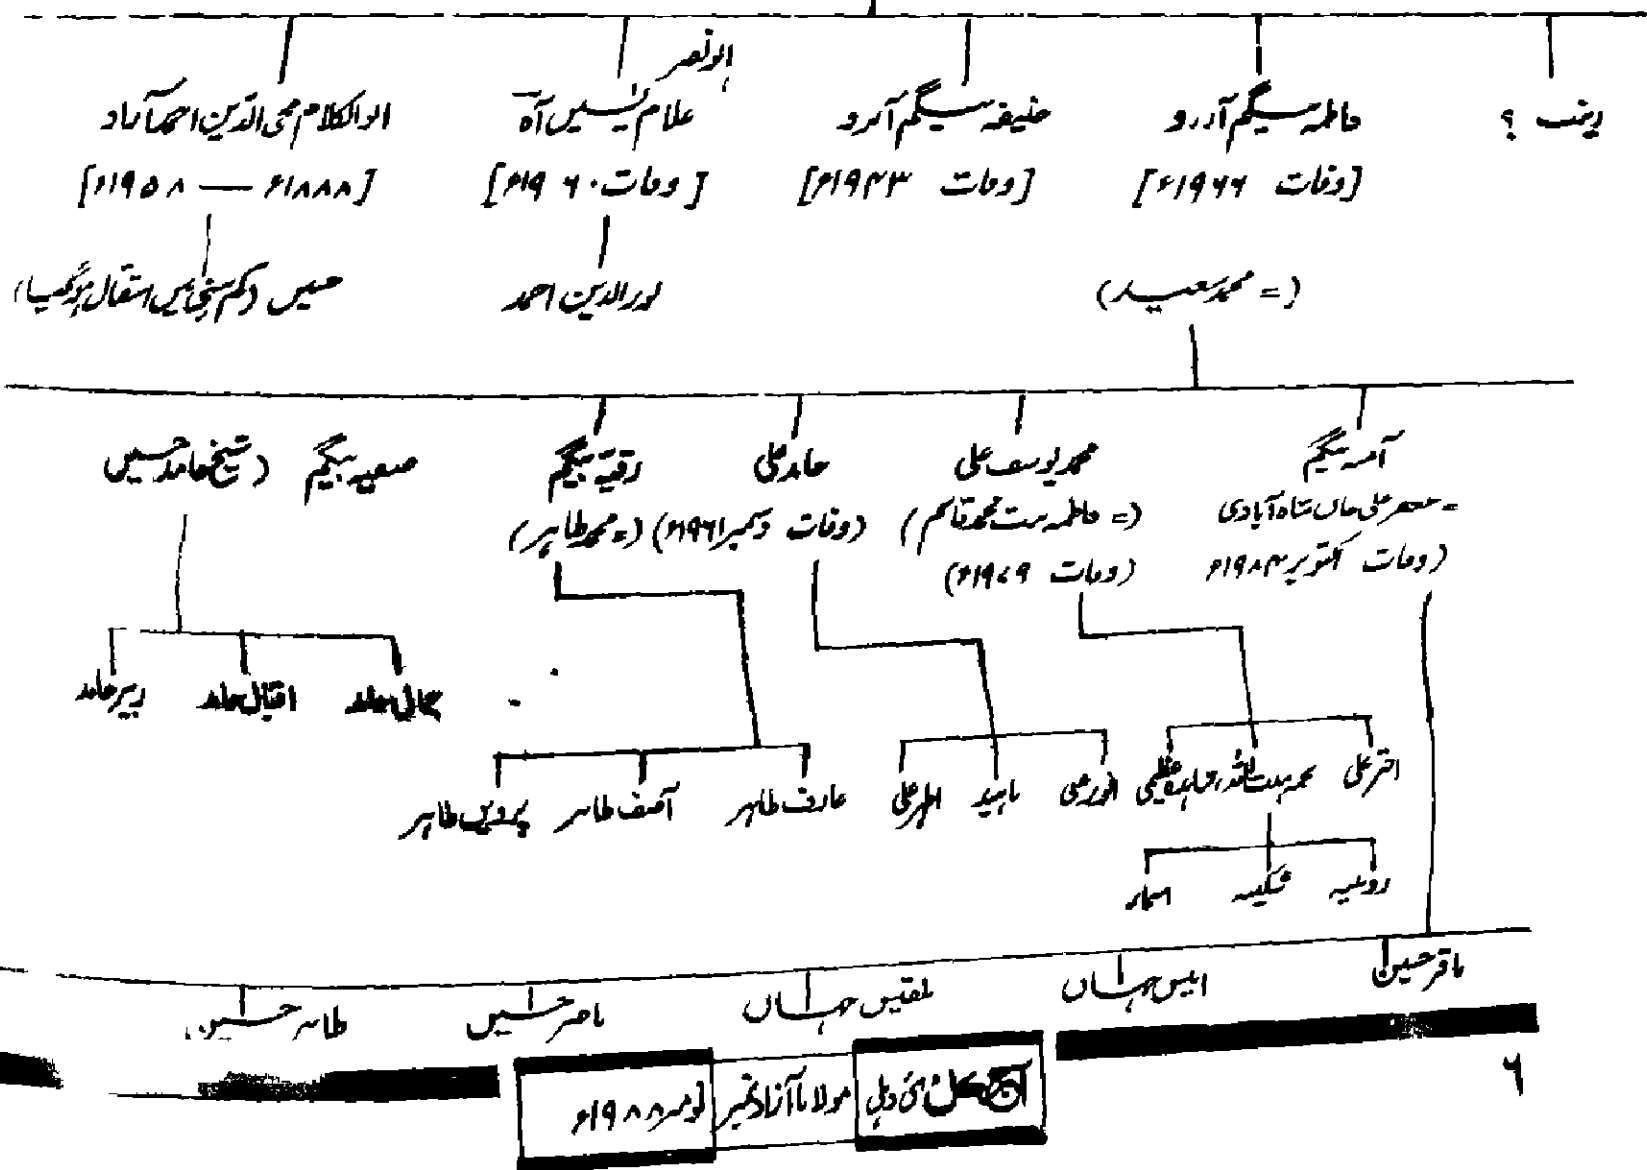 زینب ؟
فاطمہ بیگم آرزو
[وفات ۱۹۶۶ء]
(= محمد سعید)
حنیفہ بیگم آبرو
[وفات ۱۹۴۳ء]
ابونصر
غلام یٰسین آہ
[وفات ۱۹۶۰ء]
نورالدین احمد
ابوالکلام محی الدین احمد آزاد
[۱۸۸۸ء — ۱۹۵۸ء]
حسین (کم سنی میں انتقال ہوگیا)
آمنہ بیگم
= جعفر علی خاں شاہ آبادی
(وفات اکتوبر ۱۹۸۴ء
محمد یوسف علی
(= فاطمہ بنت محمد قاسم)
(وفات ۱۹۷۹ء)
حامد علی
(وفات دسمبر ۱۹۶۱ء)
رقیہ بیگم
(= محمد طاہر)
صفیہ بیگم (شیخ حامد حسین
حامد اقبال حامد زبیر حامد
اختر علی
انور علی ناہید اطہر علی
عارف طاہر آصف طاہر پروین طاہر
روبینہ شکیبہ اسماء
باقر حسین انیس جہاں بلقیس جہاں ناصر حسین طاہر حسین
آج کل نئی دہلی مولانا آزاد نمبر نومبر ۱۹۸۸ء
۶